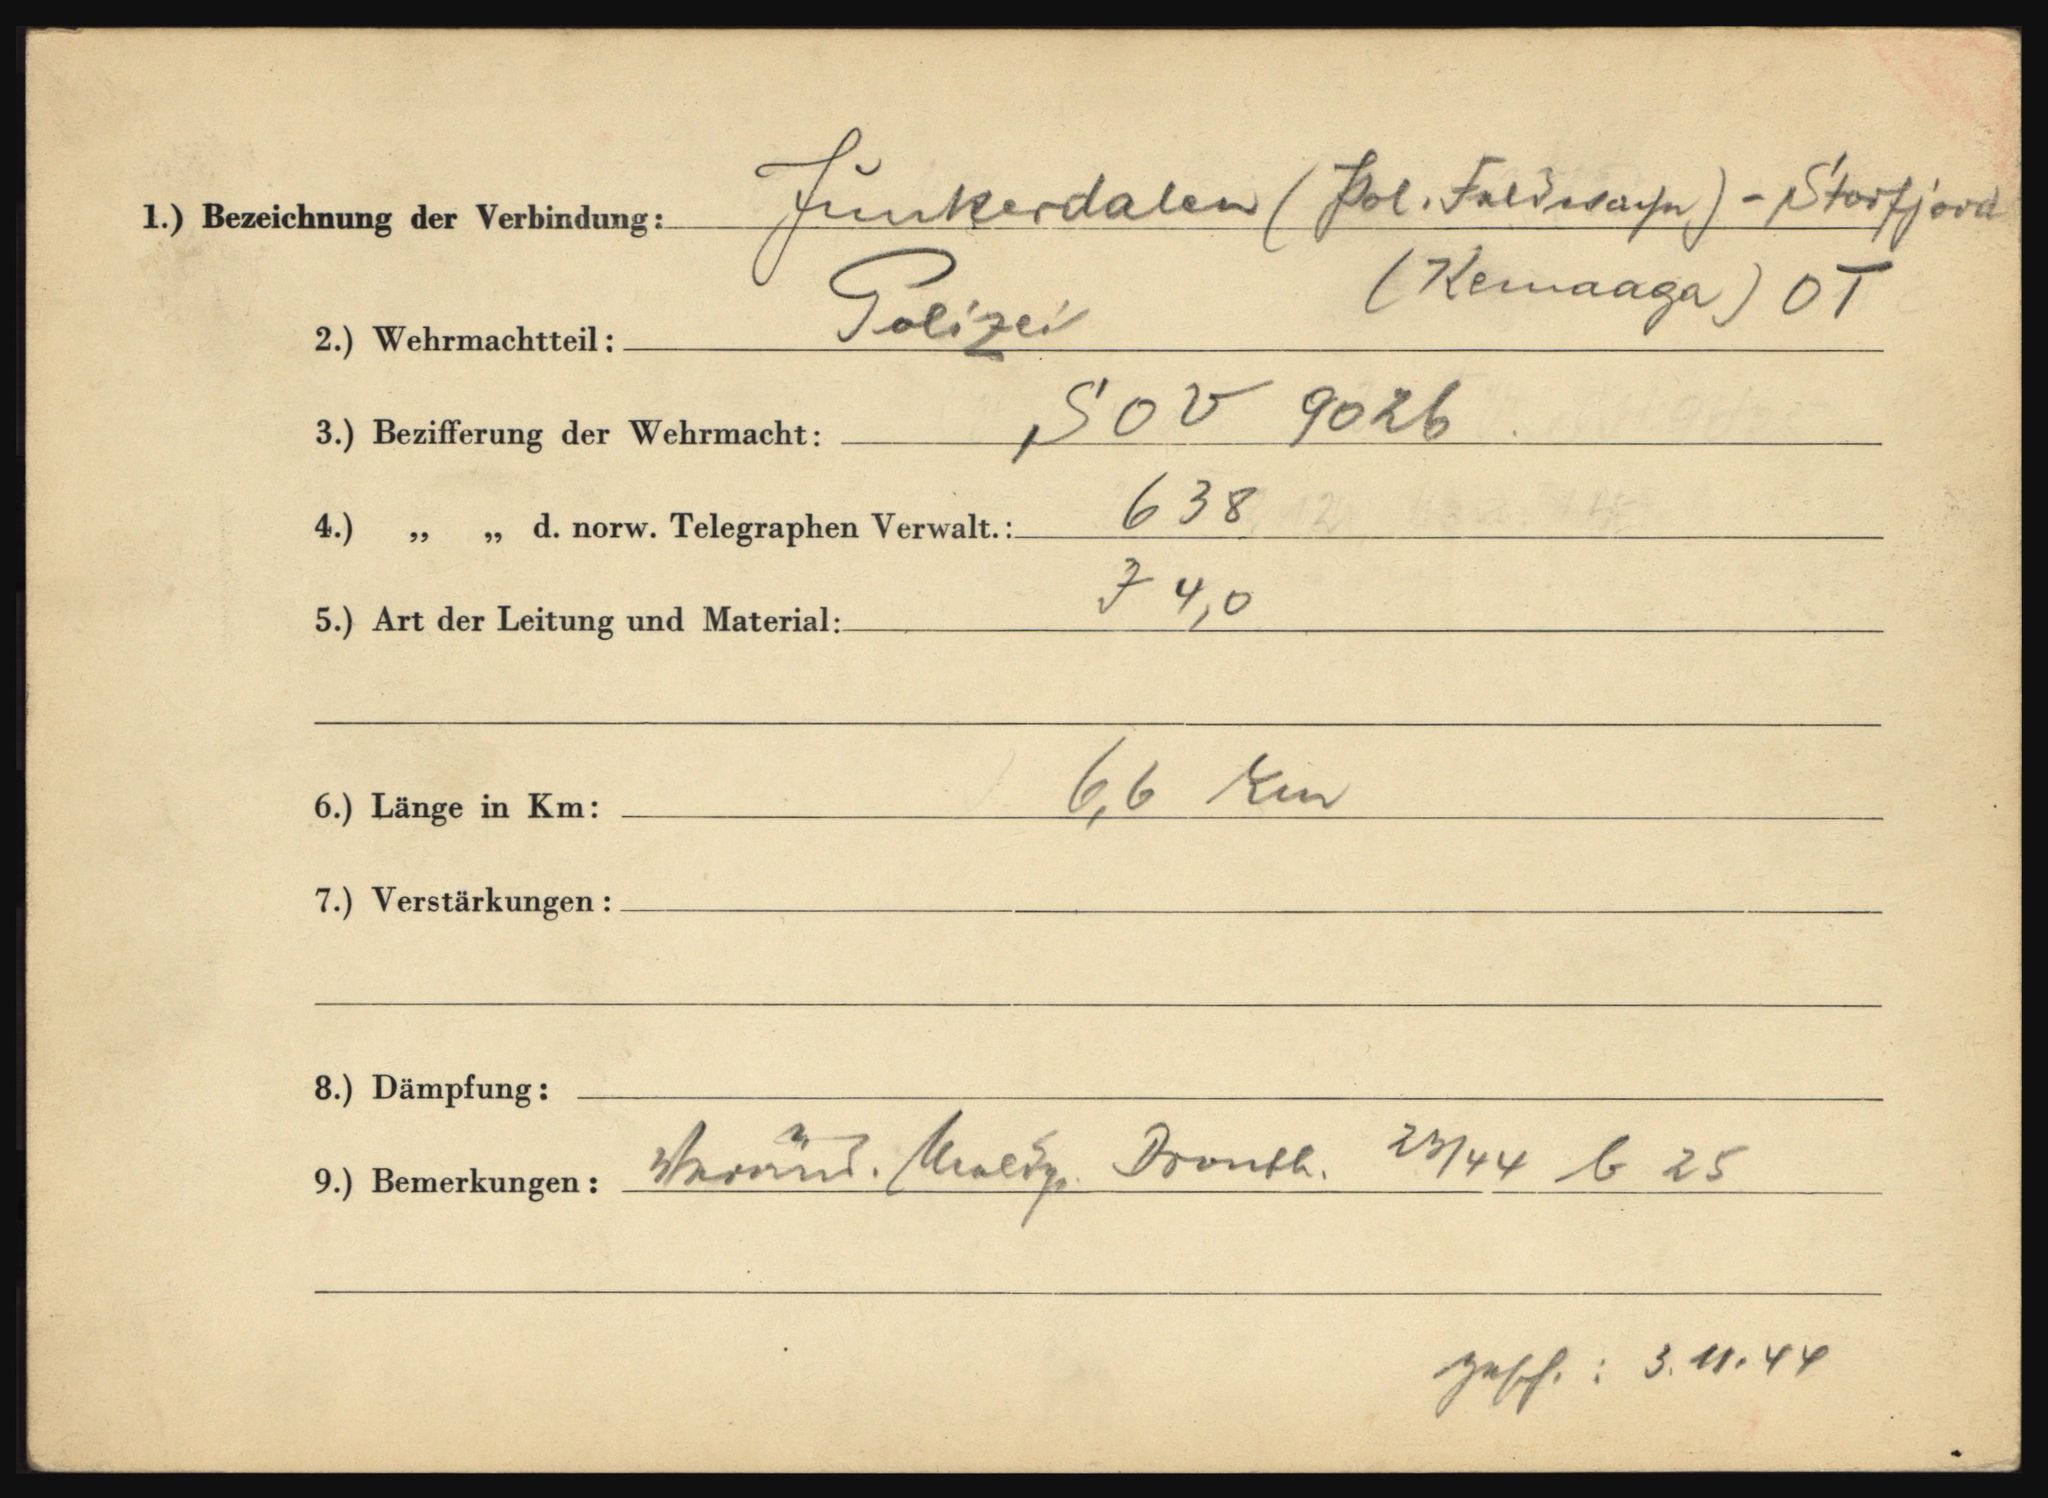 1.) Bezeichnung der Verbindung: Junkerdalen (Pol. Feldwache) - Storfjord
(Kemaaga) OT
2.) Wehrmachtteil: Polizei
3.) Bezifferung der Wehrmacht: SOV 9026
4.) „ „ d. norw. Telegraphen Verwalt.: 638
5.) Art der Leitung und Material: J 4,0
6.) Länge in Km: 6,6 Km
7.) Verstärkungen:
8.) Dämpfung:
9.) Bemerkungen: Veränd. Meldg. Dronth. 23/44 b 25
: 3.11.44